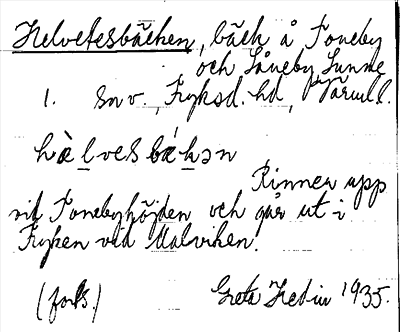 Helvetesbäcken, bäck å Toneby
och Såneby, Sunne
1. snv., Fryksd. hd, Värml.
hèlvesbékən
Rinner upp
vid Tonebyhöjden och går ut i
Fryken vid Malviken.
(forts.) Greta Hedin 1935.